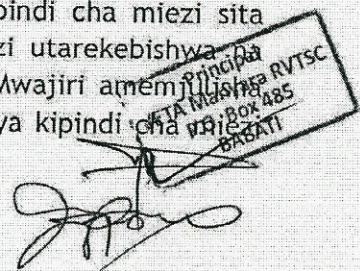 pindi cha miezi sita
zi utarekebishwa na
Mwajiri amemjulisha
ya kipindi cha miezi
Principal
VETA Manyara RVTSC
P.O. Box 485
BABATI